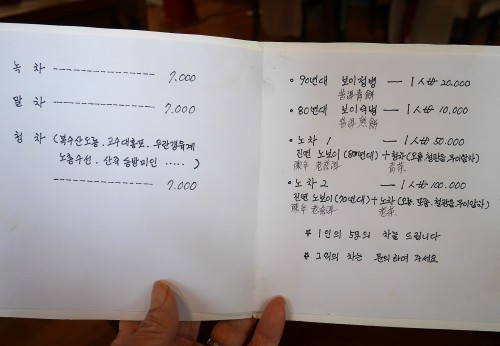 녹 차 ---------------- 7.000
말 차 ---------------- 7.000
청 차 (복수산오룡. 고수대홍포. 무관경육계
노총수선. 산죽 ..... )
---------------- 7.000
• 90년대 보이청병 — 1人 ₩ 20.000
普洱靑餠
• 80년대 보이숙병 — 1人 ₩ 10.000
普洱熟餠
• 노차 1 — 1人 ₩ 50.000
진년 노보이 (80년대) + 청차 (오룡. 철관음. 무이암차)
陳年 老普洱 靑茶
• 노차 2 — 1人 ₩ 100.000
진년 노보이 (70년대) + 노차 (오룡. 포종. 철관음. 무이암차)
陳年 老普洱 老茶
# 1인의 5g의 차를 드립니다
# 그외의 차는 문의하여 주세요